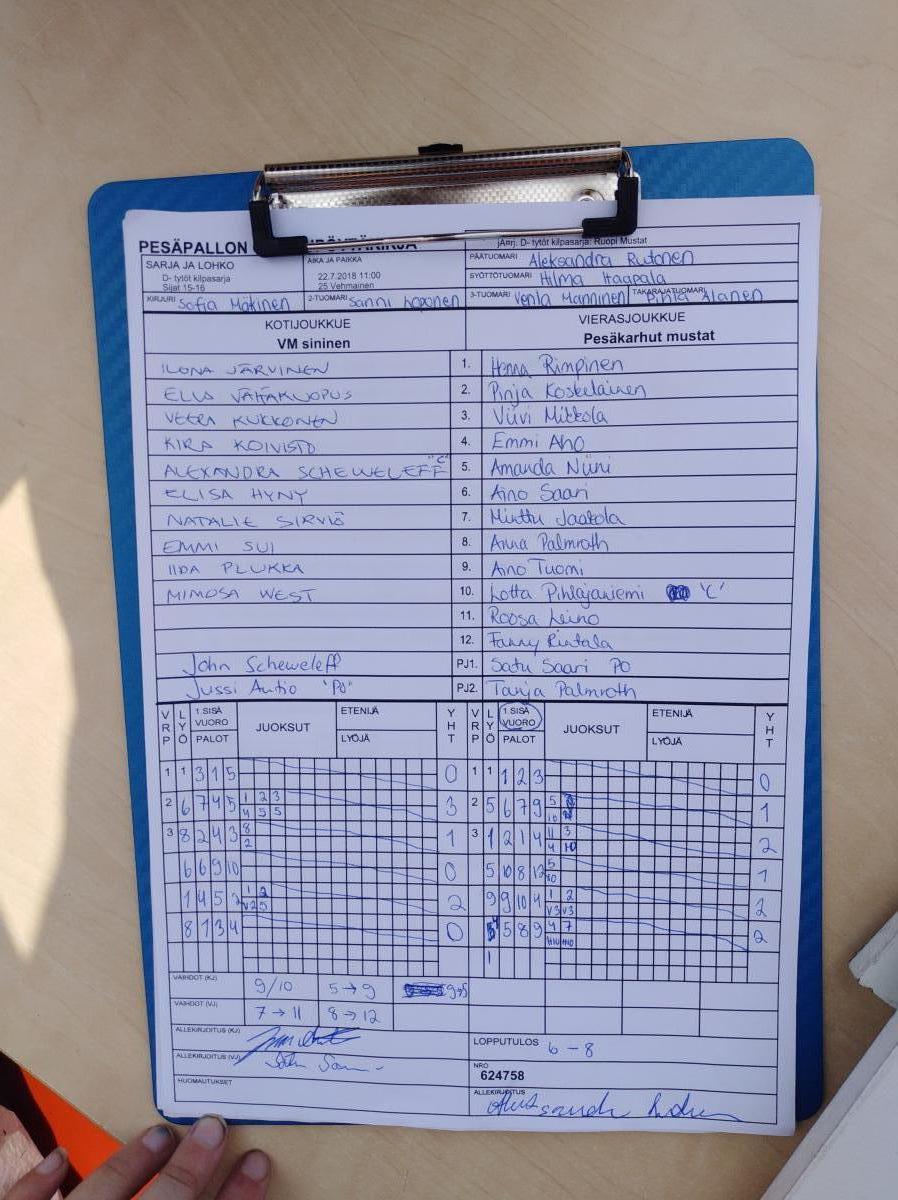 PESÄPALLON
jÄ¤rj. D- tytöt kilpasarja: Ruopi Mustat
SARJA JA LOHKO
D- tytöt kilpasarja
Sijat 15-16
AIKA JA PAIKKA
22.7.2018 11:00
25 Vehmainen
PÄÄTUOMARI Aleksandra Rutonen
SYÖTTÖTUOMARI Hilma Haapala
KIRJURI Sofia Mäkinen 2-TUOMARI Sanni Loponen 3-TUOMARI Venla Manninen TAKARAJATUOMARI Pihla Alanen
KOTIJOUKKUE VIERASJOUKKUE
VM sininen Pesäkarhut mustat
ILONA JÄRVINEN 1. Henna Rimpinen
ELLA VÄHÄKUOPUS 2. Pinja Koskelainen
VEERA KUKKONEN 3. Viivi Mikkola
KIRA KOIVISTO 4. Emmi Aho
ALEXANDRA SCHEWELEFF "C" 5. Amanda Niini
ELISA HYNY 6. Aino Saari
NATALIE SIRVIÖ 7. Minttu Jaakola
EMMI SUI 8. Anna Palmroth
IIDA PLUKKA 9. Aino Tuomi
MIMOSA WEST 10. Lotta Pihlajaniemi 'C'
11. Roosa Leino
12. Fanny Rintala
John Scheweleff PJ1. Satu Saari PO
Jussi Autio "PO" PJ2. Tanja Palmroth
VRP LYÖ 1.SISÄ VUORO PALOT JUOKSUT ETENIJÄ LYÖJÄ YHT VRP LYÖ 1.SISÄ VUORO PALOT JUOKSUT ETENIJÄ LYÖJÄ YHT
1 1 3 1 5 0 1 1 1 2 3 0
2 6 7 4 5 1 2 3 3 2 5 6 7 9 5 1
4 5 5 10
3 8 2 4 3 8 1 3 1 2 1 4 11 3 2
2 4 10
6 6 9 10 0 5 10 8 12 5 1
10
1 4 5 2 1 2 2 9 9 10 4 1 2 2
V2 5 V3 V3
8 1 3 4 0 4 5 8 9 4 7 2
1
VAIHDOT (KJ) 9/10 5→9 9→5
VAIHDOT (VJ) 7→11 8→12
ALLEKIRJOITUS (KJ)
LOPPUTULOS 6-8
ALLEKIRJOITUS (VJ)
NRO
624758
HUOMAUTUKSET
ALLEKIRJOITUS